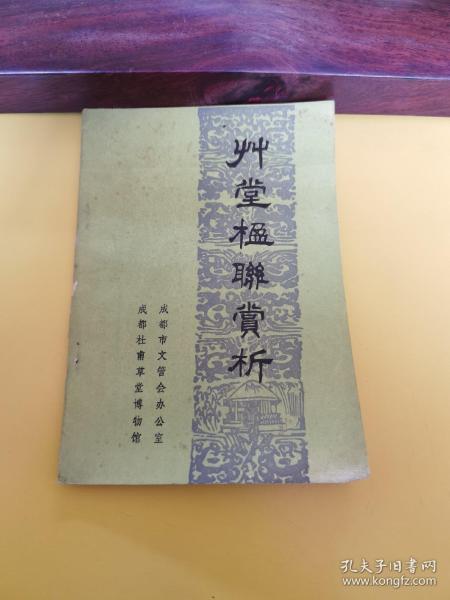 艸堂楹聯賞析
成都市文管会办公室
成都杜甫草堂博物馆
孔夫子旧书网
www.kongfz.com